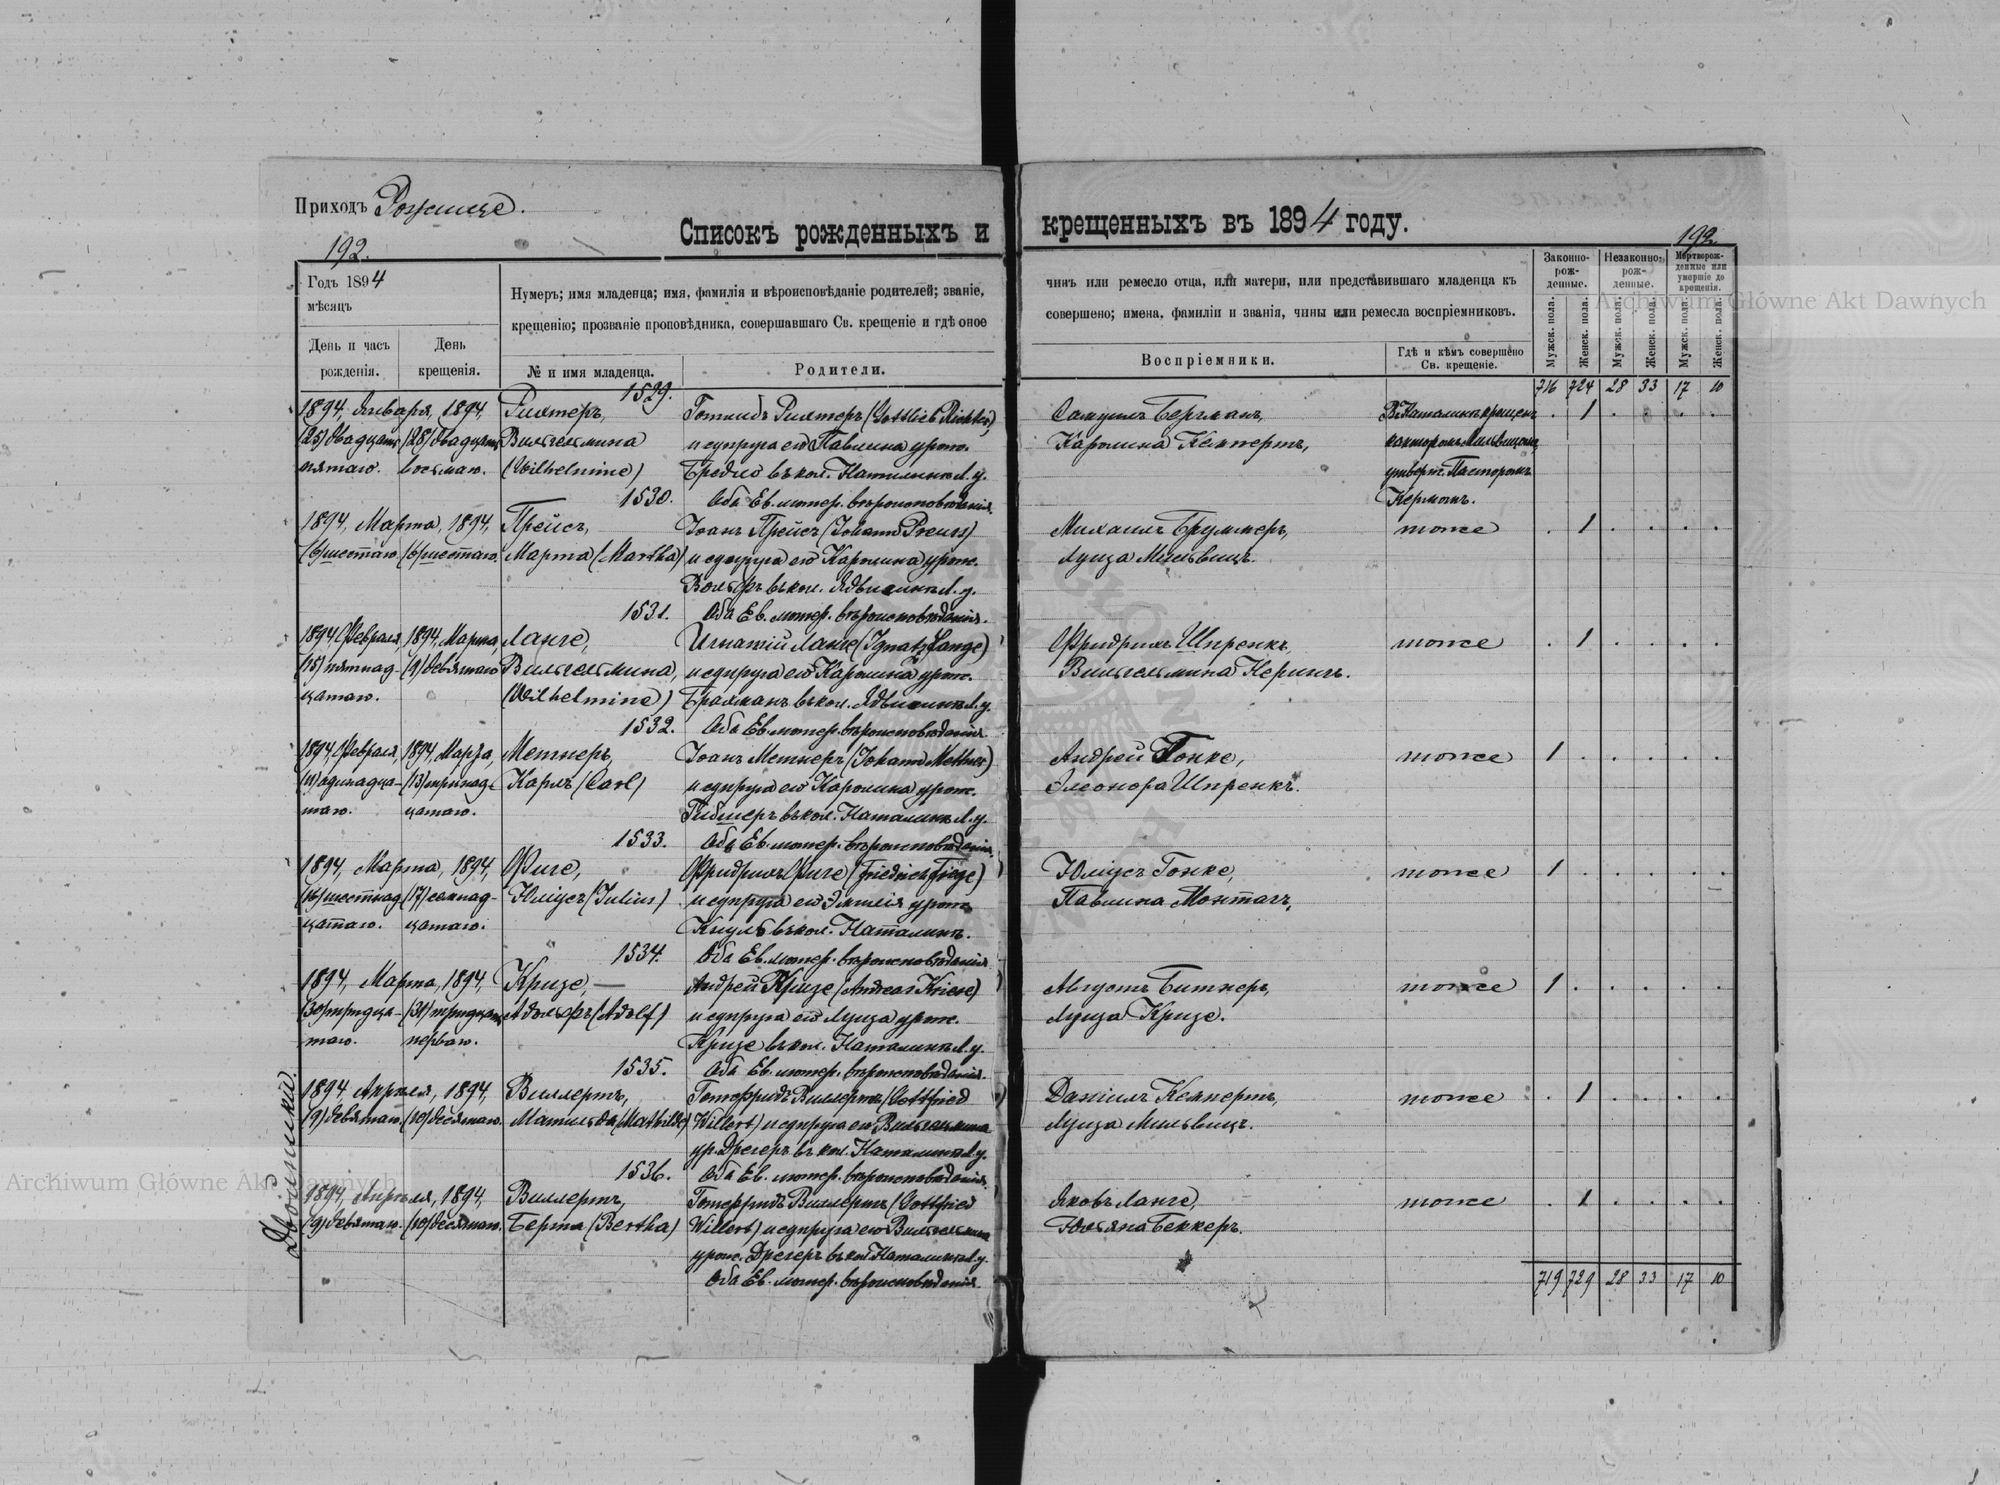 Приходъ Рожище.
Списокъ рожденныхъ и крещенныхъ въ 1894 году.
192.
192.
Годъ 1894
мѣсяцъ
День и часъ рожденія.
День крещенія.
Нумеръ; имя младенца; имя, фамилія и вѣроисповѣданіе родителей; званіе, чинъ или ремесло отца, или матери, или представившаго младенца къ
крещенію; прозваніе проповѣдника, совершавшаго Св. крещеніе и гдѣ оное совершено; имена, фамиліи и званія, чины или ремесла воспріемниковъ.
№ и имя младенца.
Родители.
Воспріемники.
Гдѣ и кѣмъ совершено Св. крещеніе.
Законно-рож-денные.
Незаконно-рож-денные.
Мертворож-денные или умершіе до крещенія.
Мужск. пола. Женск. пола. Мужск. пола. Женск. пола. Мужск. пола. Женск. пола.
716 724 28 33 17 10
1529.
1894, Января, 1894, Рихтеръ, Готлибъ Рихтеръ (Gottlieb Richter) Самуилъ Бергманъ, Въ Наталинѣ крещенъ . 1 . . . .
(25) двадцать (28) двадцать Вильгельмина и супруга его Павлина урож. Каролина Кемпертъ, канторомъ Мильвицомъ,
пятаго. восьмаго. (Wilhelmine) въ кол. Наталинъ Л. у. утверж. Пасторомъ
1530. Оба Ев. лютер. вѣроисповѣданія. Керномъ.
1894, Марта, 1894, Прейсъ, Іоанъ Прейсъ (Johann Preuss) Михаилъ Бруммеръ, тоже . 1 . . . .
(6) шестаго (6) шестаго. Марта (Martha) и супруга его Каролина урож. Луиза Мильвицъ.
Вольфъ въ кол. Ядвининъ Л. у.
1531. Оба Ев. лютер. вѣроисповѣданія.
1894, Февраля, 1894, Марта, Ланге, Игнатій Ланге (Ignatz Lange) Фридрихъ Шпренкъ, тоже . 1 . . . .
(15) пятнад- (9) девятаго Вильгельмина, и супруга его Каролина урож. Вильгельмина Нерингъ.
цатаго. (Wilhelmine) въ кол. Ядвининъ Л. у.
1532. Оба Ев. лютер. вѣроисповѣданія
1894, Февраля, 1894, Марта, Метнеръ, Іоанъ Метнеръ (Johann Mettner) Андрей Гонке, тоже 1 . . . . .
(11) одинадца- (13) тринад- Карлъ (Carl) и супруга его Каролина урож. Элеонора Шпренкъ.
таго. цатаго. въ кол. Наталинъ Л. у.
1533. Оба Ев. лютер. вѣроисповѣданія.
1894, Марта, 1894, Фиге, Фридрихъ Фиге (Friedrich Fiege) Юліусъ Гонке, тоже 1 . . . . .
(16) шестнад (17) семнад- Юліусъ (Julius) и супруга его Эмилія урож. Павлина Монтагъ,
цатаго. цатаго. въ кол. Наталинъ.
1534. Оба Ев. лютер. вѣроисповѣданія
1894, Марта, 1894, Кризе, — Андрей Кризе (Andreas Kriese) Августъ Битнеръ, тоже 1 . . . . .
(30) тридца- (31) тридцать Адольфъ (Adolf) и супруга его Луиза урож. Луиза Кризе.
таго. перваго. Кризе въ кол. Наталинъ Л. у.
1535. Оба Ев. лютер. вѣроисповѣданія.
Двойники.
1894 Апрѣля, 1894, Виллертъ, Готфридъ Виллертъ (Gottfried Даніилъ Кемпертъ, тоже . 1 . . . .
(9) девятаго. (10) десятаго. Матильда (Mathilde) Willert) и супруга его Вильгельмина Луиза Мильвицъ.
ур. Дрегеръ въ кол. Наталинъ Л. у.
1536. Оба Ев. лютер. вѣроисповѣданія.
1894, Апрѣля, 1894, Виллертъ, Готфридъ Виллертъ (Gottfried Яковъ Ланге, тоже . 1 . . . .
(9) девятаго. (10) десятаго. Берта (Bertha) Willert) и супруга его Вильгельмина Юльяна Беккеръ.
урож. Дрегеръ въ кол. Наталинъ Л. у.
Оба Ев. лютер. вѣроисповѣданія.
719 729 28 33 17 10
Archiwum Główne Akt Dawnych
Archiwum Główne Akt Dawnych